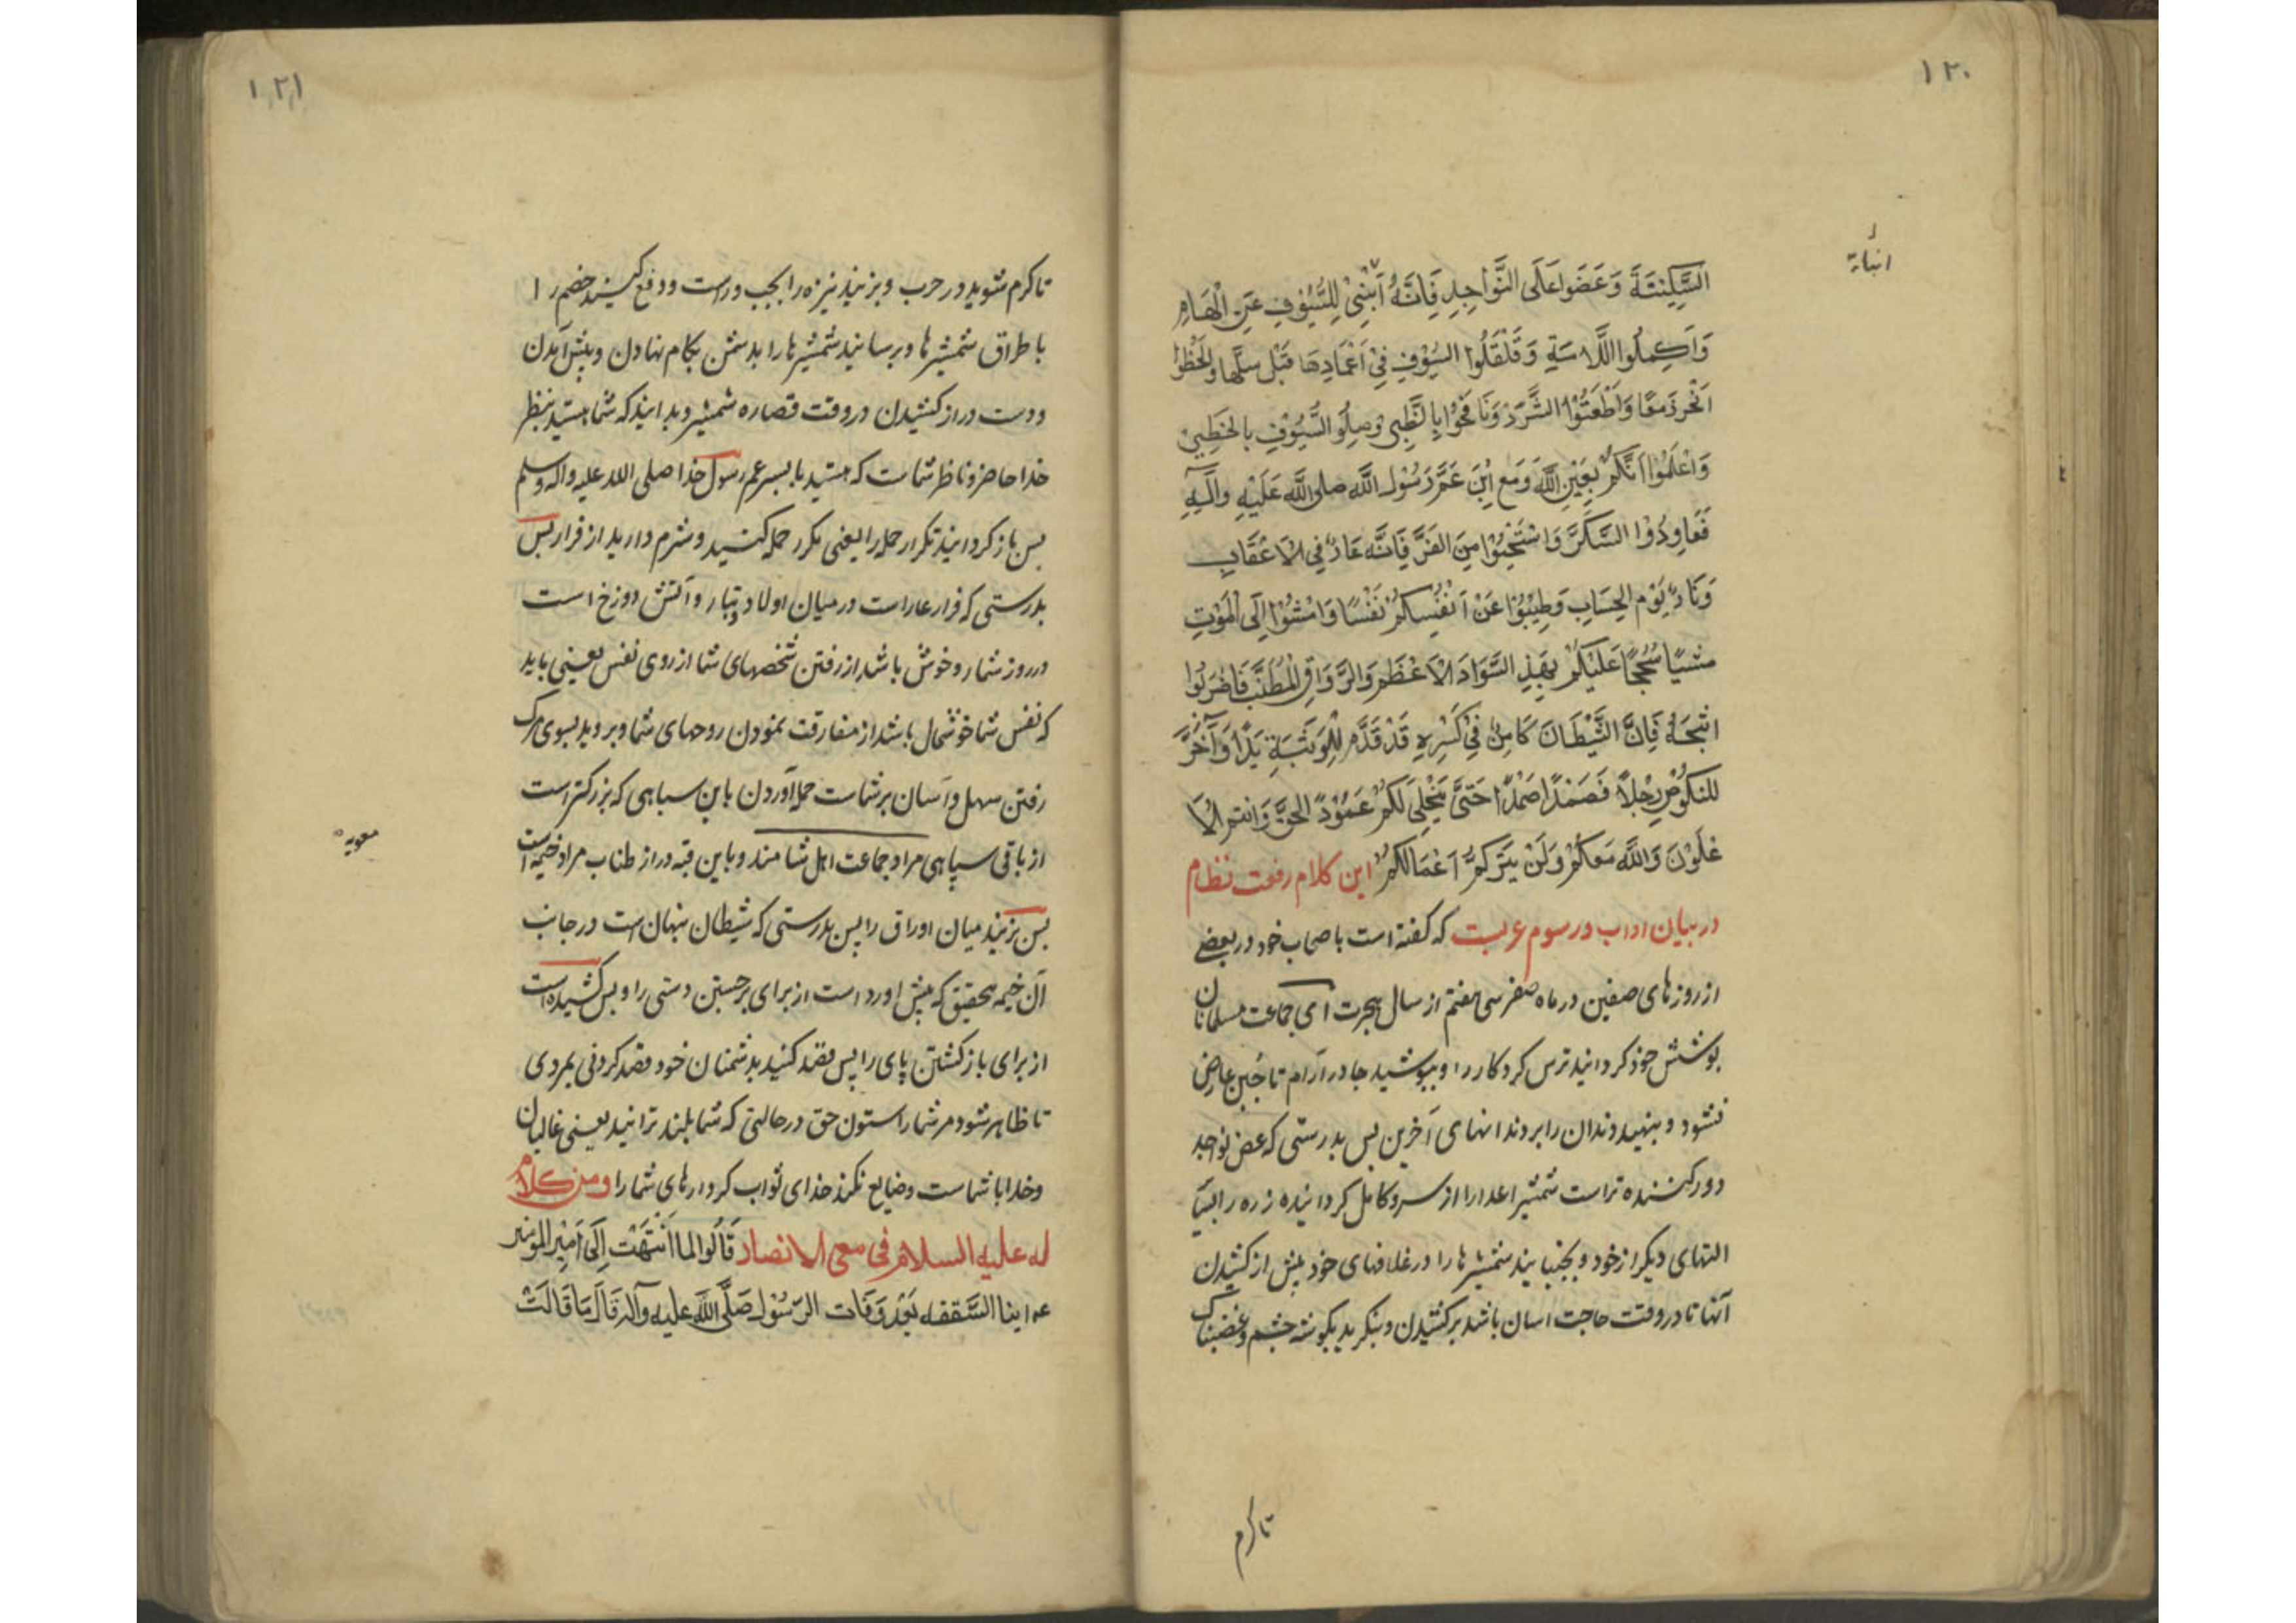 ١٢٠
انباة
السَّكِيْنَةَ وَعَضَوا عَلَى النَّواجِدِ فَاِنَّهُ اَنْبٰى لِلسُّيُوْفِ عَنِ الْهَامِ
وَاَكمِلُوا اللَّامَةِ وَقَلْقِلُوا السُيُوْفِ فِيْ اَغْمَادِهَا قَبْل سَلِّها وَلْحَظُوا
اَلْخُرزَمعًا وَاطْعَنُوْا الشَّزَرْ وَنَافَحُوْا بِالظُّبٰى وَصِلُوا السُّيُوْفِ بالخطِىْ
وَاعْلَمُوْا اَنَّكُمْ بِعَيْنِ اللَّهَ وَمَع اِبْنِ عَمِّ رَسُوْل اللَّه صلى اللَّه عَلَيْهِ وَالَهِ
فَعَاوِدُوْا السَكرَّ وَاسْتَحْيُوْا مِنَ الفَرِّ فَاِنَّه عَارٌ فِي الاَعْقَابِ
وَنَارٌ يَوْم الحِسَابِ وَطِيْبُوْا عَنْ اَنْفُسِكُمْ نَفْسًا وَامْشُوْا اِلَى الْمَوْتِ
مشيًا سُجُحًا عَلَيْكُمْ بِهَذِ السَّوَادَ الاَعْظَمِ وَالرَّوَاقِ المُطَنَّبْ فَاضْرِبُوا
اثبَجَهُ فِاِنَّ الشَّيْطَانَ كَامِنٌ فِيْ كَسْرِهِ قَدْ قَدَّم لِلْوَثْبَةِ يَدًا وَآخَّرَ
للنكُوْصُ رِجْلاً فَصَمْدًا صَمْدًا حَتَّى يَنْجَلِىَ لَكُمْ عَمُوْدُ الحَقِّ وَانتم الاَ
عْلَوْنَ وَاللَّه مَعكُمْ وَلَنْ يَتِرَكمْ اَعْمَالكُمْ این کلام رفعت نظام
در بیان اداب و رسوم عربست که گفته است با صحاب خود در بعضے
از روزهای صفین در ماه صفر سی هفتم از سال هجرت ای جماعت مسلمانان
پوشش خود کردانید ترس کردکار را و بپوشید جادر آرام تا جبن عارض
نشود و بنهید دندان را بر دندانهای آخرین پس بدرستی که عض نواجد
دورکننده تر است شمشیر اعدا را از سر و کامل کردانیده زره را البتا
التهای دیکر از خود و بجنبانید شمشیرها را در غلافهای خود پیش از کشیدن
آنها تا در وقت حاجت اسان باشد بر کشیدن و بنکرید بکوشه چشم و غضبناک
تا کرم
١٢١
تا کرم شوید در حرب و بزنید نیزه را بجپ و راست و دفع کنید خصم را
باطراف شمشیرها و برسانید شمشیرها را بدشمن بکام نهادن و پیش آمدن
و دست دراز کشیدن در وقت قصاره شمشیر و بدانید که شما هستید بنظر
خدا حاضر و ناظر شماست که هستید با پسر عم رسول خدا صلی الله علیه واله وسلم
پس باز کردانید تکرار حمله را یعنی مکرر حمله کنید و شرم دارید از فرار پس
بدرستی که فرار عار است در میان اولاد و تبار و آتش دوزخ است
در روز شمار و خوش باشد از رفتن شخصهای شما از روی نفس یعنی باید
که نفس شما خوشحال باشد از مفارقت نمودن روحهای شما و بروید بسوی مرک
رفتن سهل و آسان بر شماست حمله آوردن باین سپاهی که بزرکتر است
از باقی سپاهی مراد جماعت اهل شامند و باین قبه دراز طناب مراد خیمه است
معویه
پس بزنید میان اوراق را پس بدرستی که شیطان پنهان است در جانب
آن خیمه بتحقیق که پیش اورد است از برای برجستن دستی را و پس کشیده است
از برای باز کشتن پای را پس قصد کنید بدشمنان خود قصد کردنی بمردی
تا ظاهر شود مر شما را ستون حق در حالتی که شما بلند ترانید یعنی غالبان
و خدا با شماست و ضایع نکند خدای ثواب کردارهای شما را ومن كلام
له عليه السلام فى معى الانصار قَالُوا لما انْتَهَتْ اِلَى اَمِيْر المومنير
عه اينا السَّقفه بَعْد وَفَات الرّسُوْل صَلَّى اللَّه عليه وآله قَالَ مَا قَالَتْ